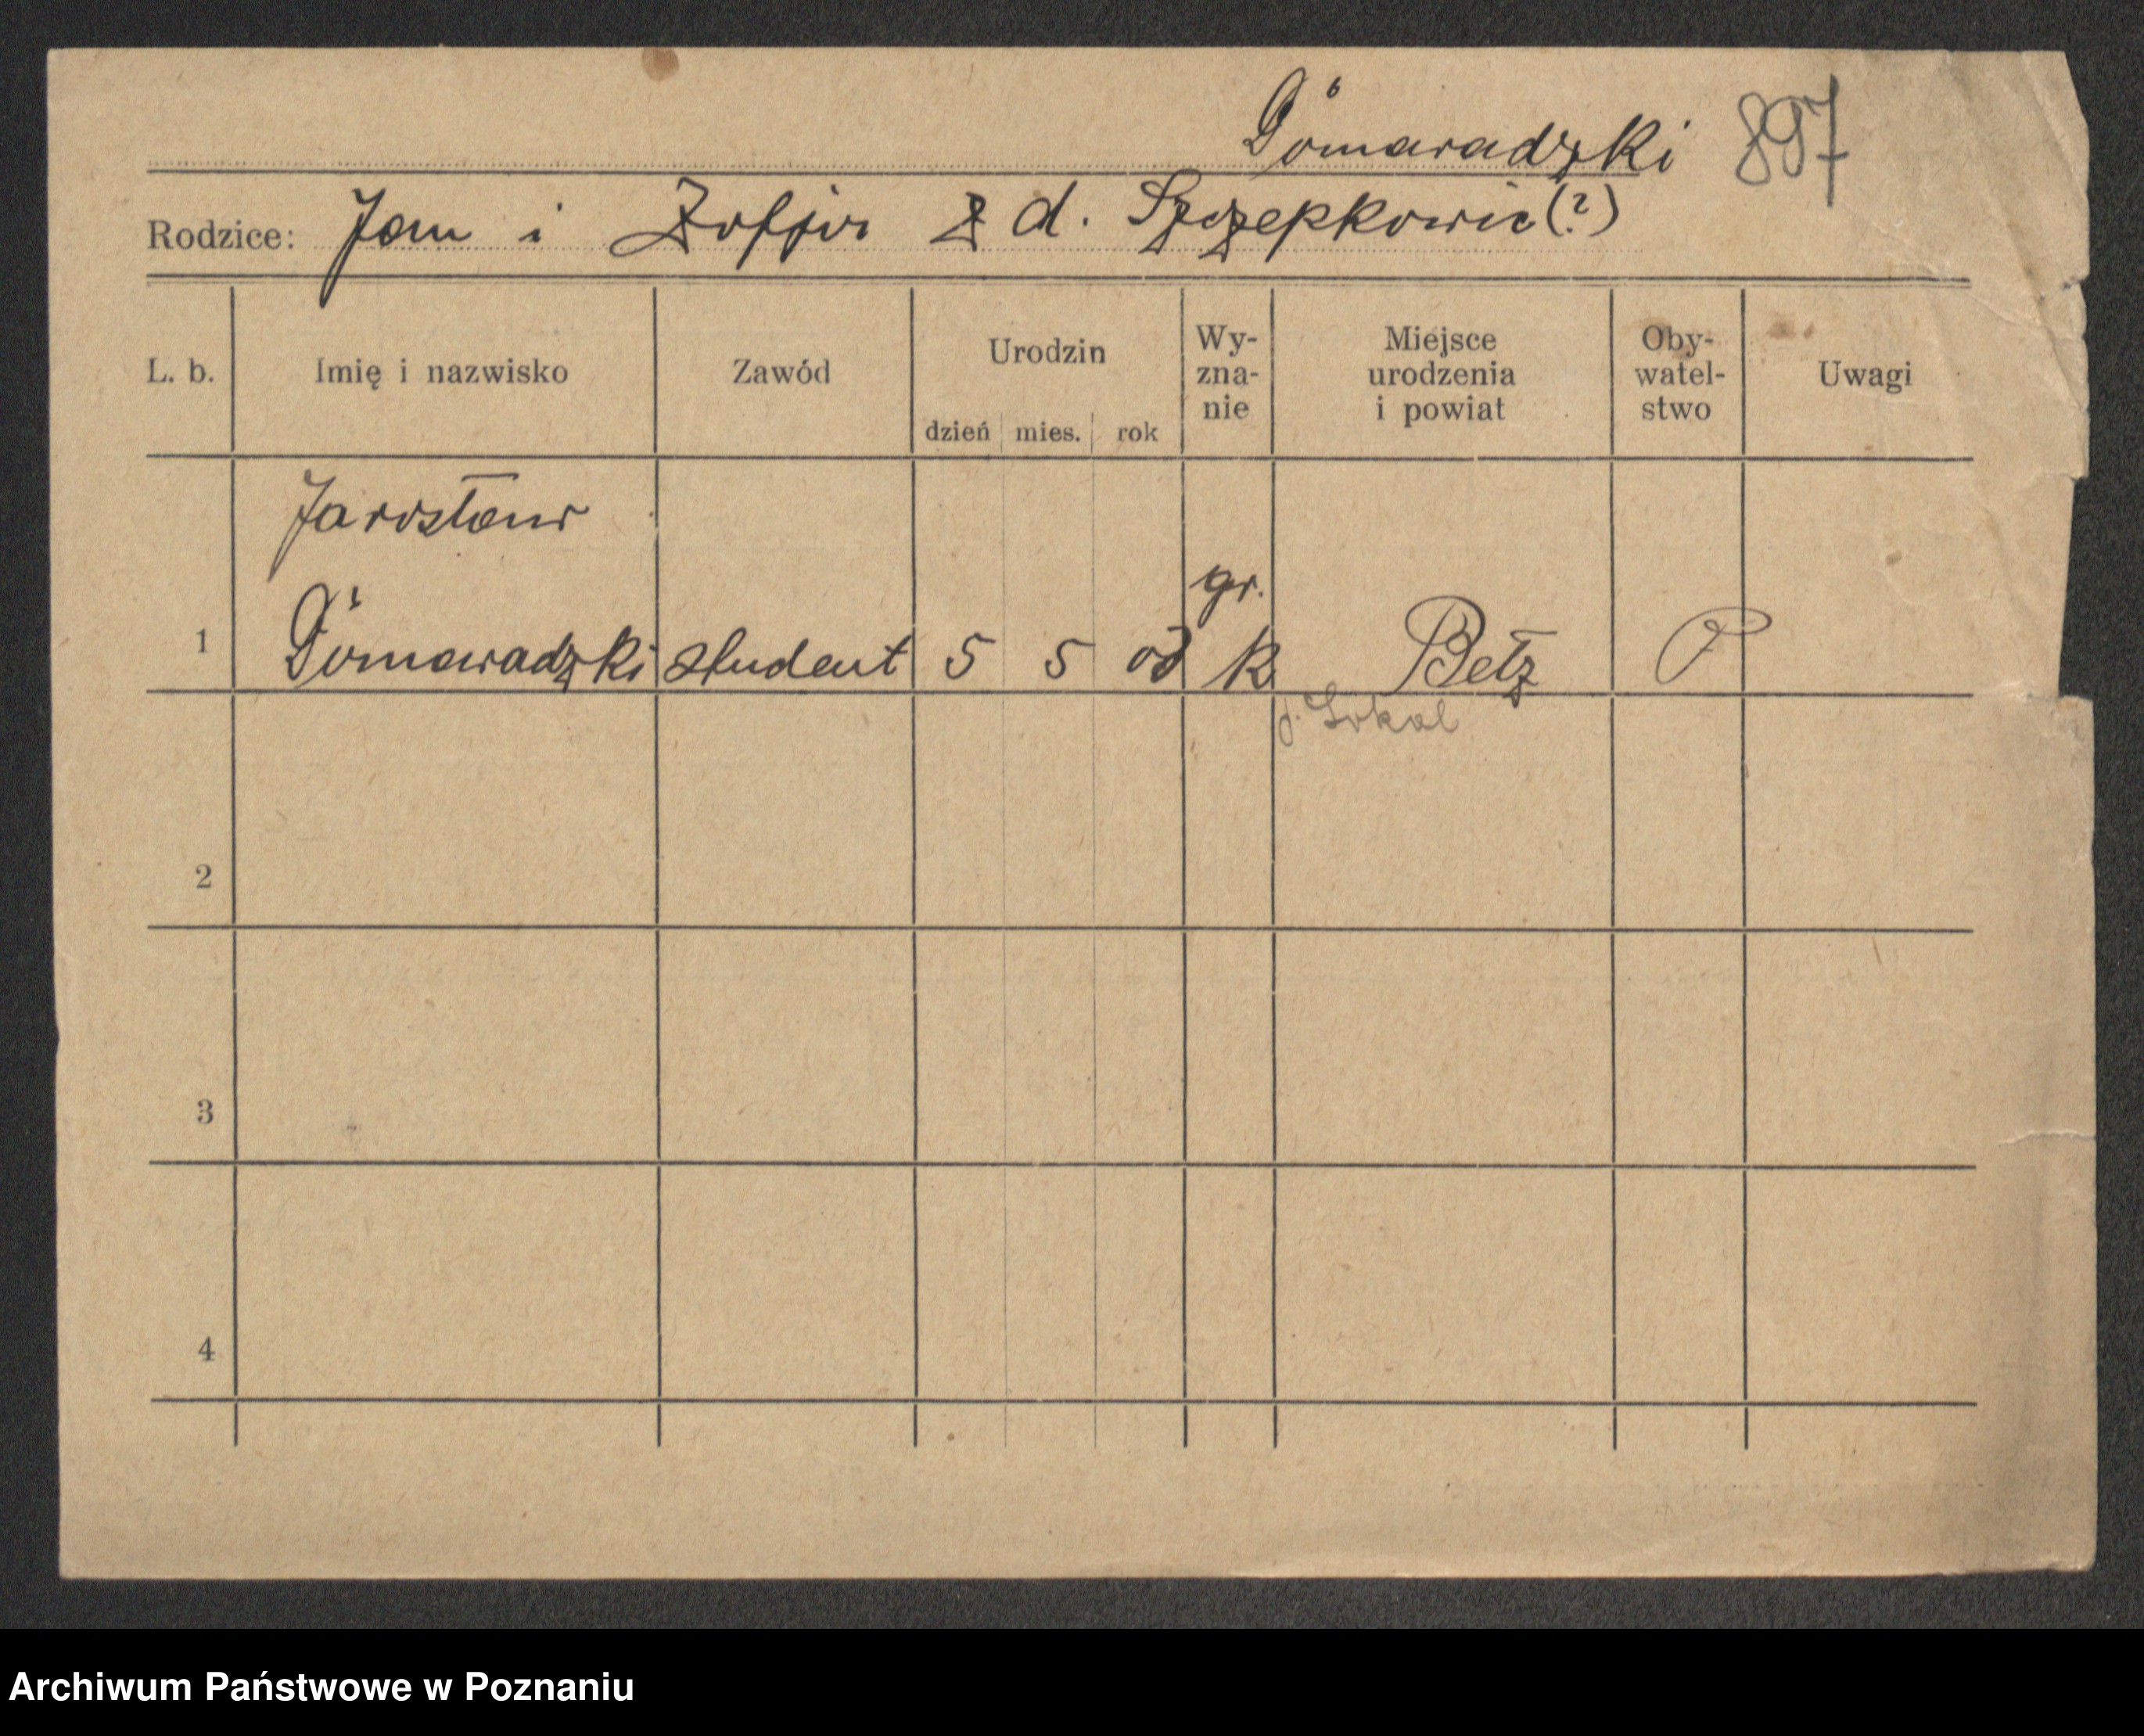 Domaradzki 897
Rodzice: Jan i Zofja z d. Szczepkowic (?)
L. b. Imię i nazwisko Zawód Urodzin dzień mies. rok Wy-zna-nie Miejsce urodzenia i powiat Oby-watel-stwo Uwagi
Jarosław
gr.
1 Domaradzki student 5 5 08 k Bełz P
p. Sokal
2
3
4
Archiwum Państwowe w Poznaniu